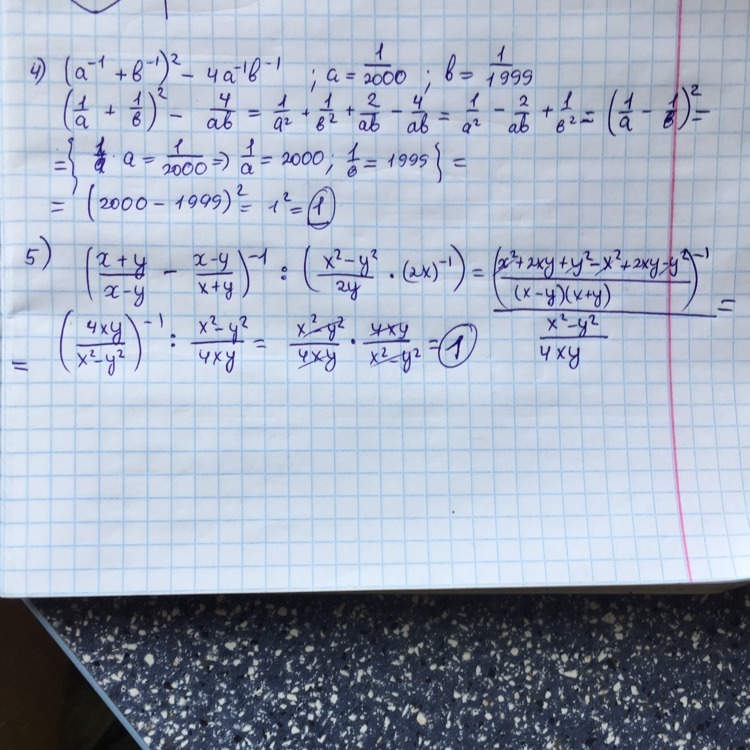 4) (a⁻¹ + b⁻¹)² − 4a⁻¹b⁻¹ ; a = 1/2000 ; b = 1/1999
(1/a + 1/b)² − 4/ab = 1/a² + 1/b² + 2/ab − 4/ab = 1/a² − 2/ab + 1/b² = (1/a − 1/b)² =
= { a = 1/2000 ⇒ 1/a = 2000 ; 1/b = 1999 } =
= (2000 − 1999)² = 1² = 1
5) ((x+y)/(x−y) − (x−y)/(x+y))⁻¹ : ((x²−y²)/2y · (2x)⁻¹) = ((x²+2xy+y²−x²+2xy−y²)/((x−y)(x+y)))⁻¹ / ((x²−y²)/4xy) =
= (4xy/(x²−y²))⁻¹ : (x²−y²)/4xy = (x²−y²)/4xy · 4xy/(x²−y²) = 1